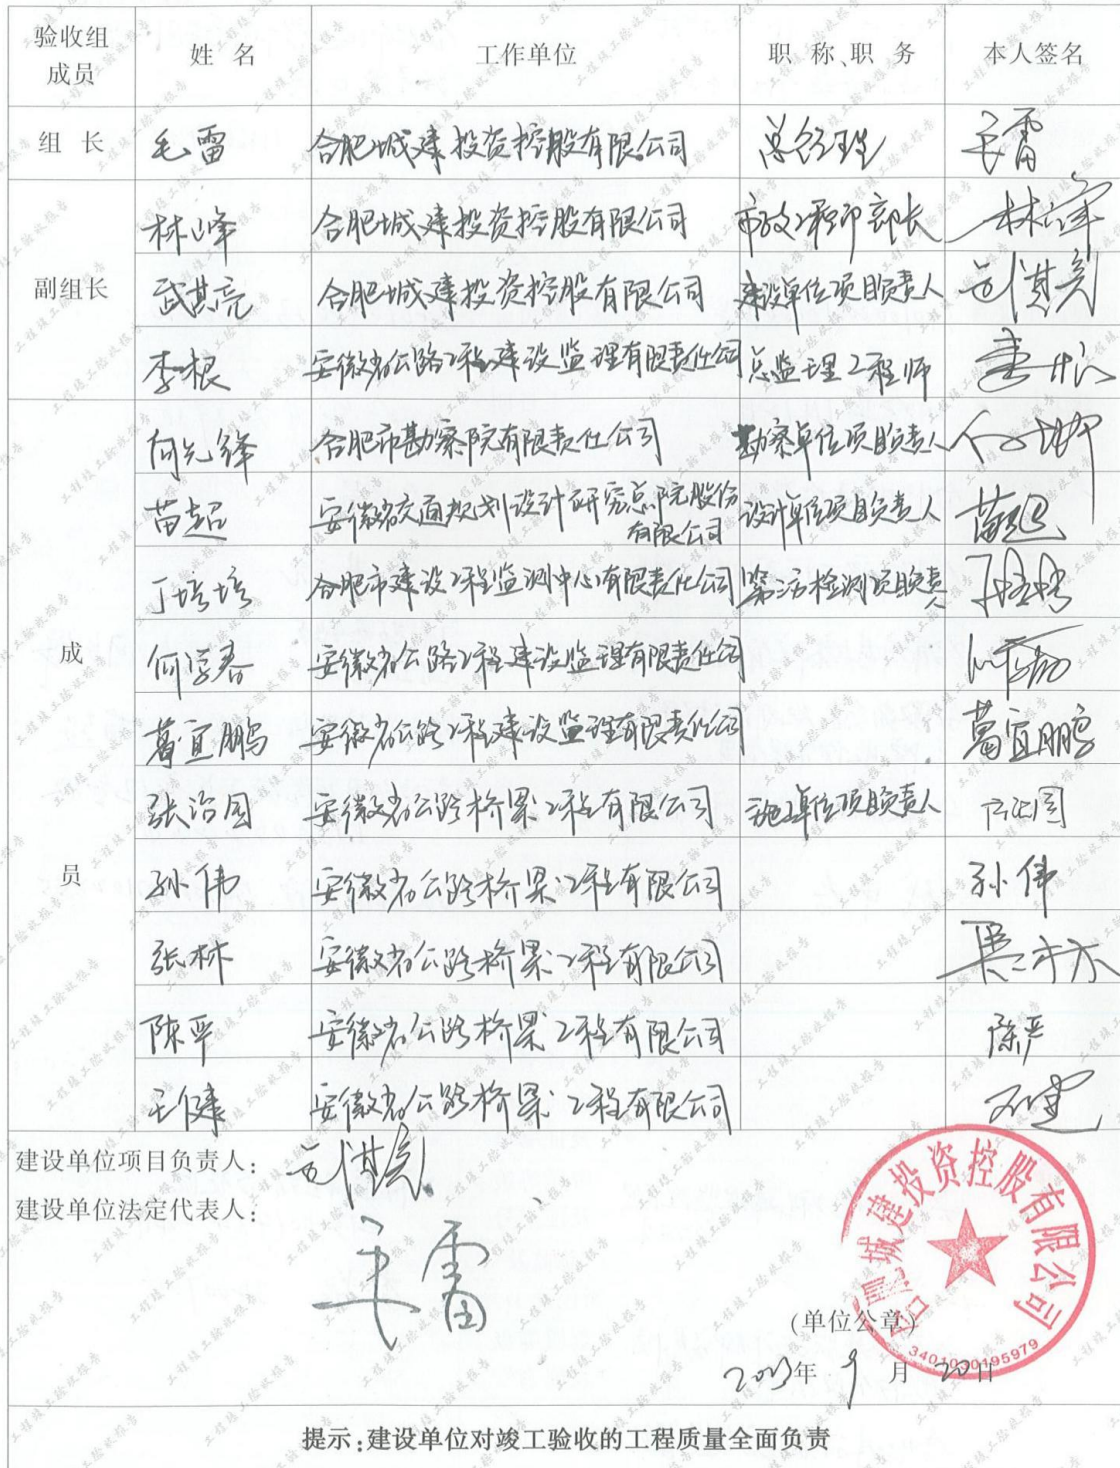 验收组成员 姓 名 工作单位 职 称、职 务 本人签名
组 长 毛雷 合肥城建投资控股有限公司 总经理 毛雷
副组长
林峰 合肥城建投资控股有限公司 市政工程部部长 林峰
武其亮 合肥城建投资控股有限公司 建设单位项目负责人 武其亮
李根 安徽省公路工程建设监理有限责任公司 总监理工程师 李根
成 员
何先锋 合肥市勘察院有限责任公司 勘察单位项目负责人
苗超 安徽省交通规划设计研究总院股份有限公司 设计单位项目负责人 苗超
丁培培 合肥市建设工程监测中心有限责任公司 第三方检测项目负责人 丁培培
何学春 安徽省公路工程建设监理有限责任公司
葛宜鹏 安徽省公路工程建设监理有限责任公司 葛宜鹏
张治国 安徽省公路桥梁工程有限公司 施工单位项目负责人 张治国
孙伟 安徽省公路桥梁工程有限公司 孙伟
张林 安徽省公路桥梁工程有限公司
陈平 安徽省公路桥梁工程有限公司
王健 安徽省公路桥梁工程有限公司 王健
建设单位项目负责人： 武其亮
建设单位法定代表人：
毛雷
合肥城建投资控股有限公司
3401030195979
（单位公章）
2023年 9 月 20日
提示：建设单位对竣工验收的工程质量全面负责
工程竣工验收报告